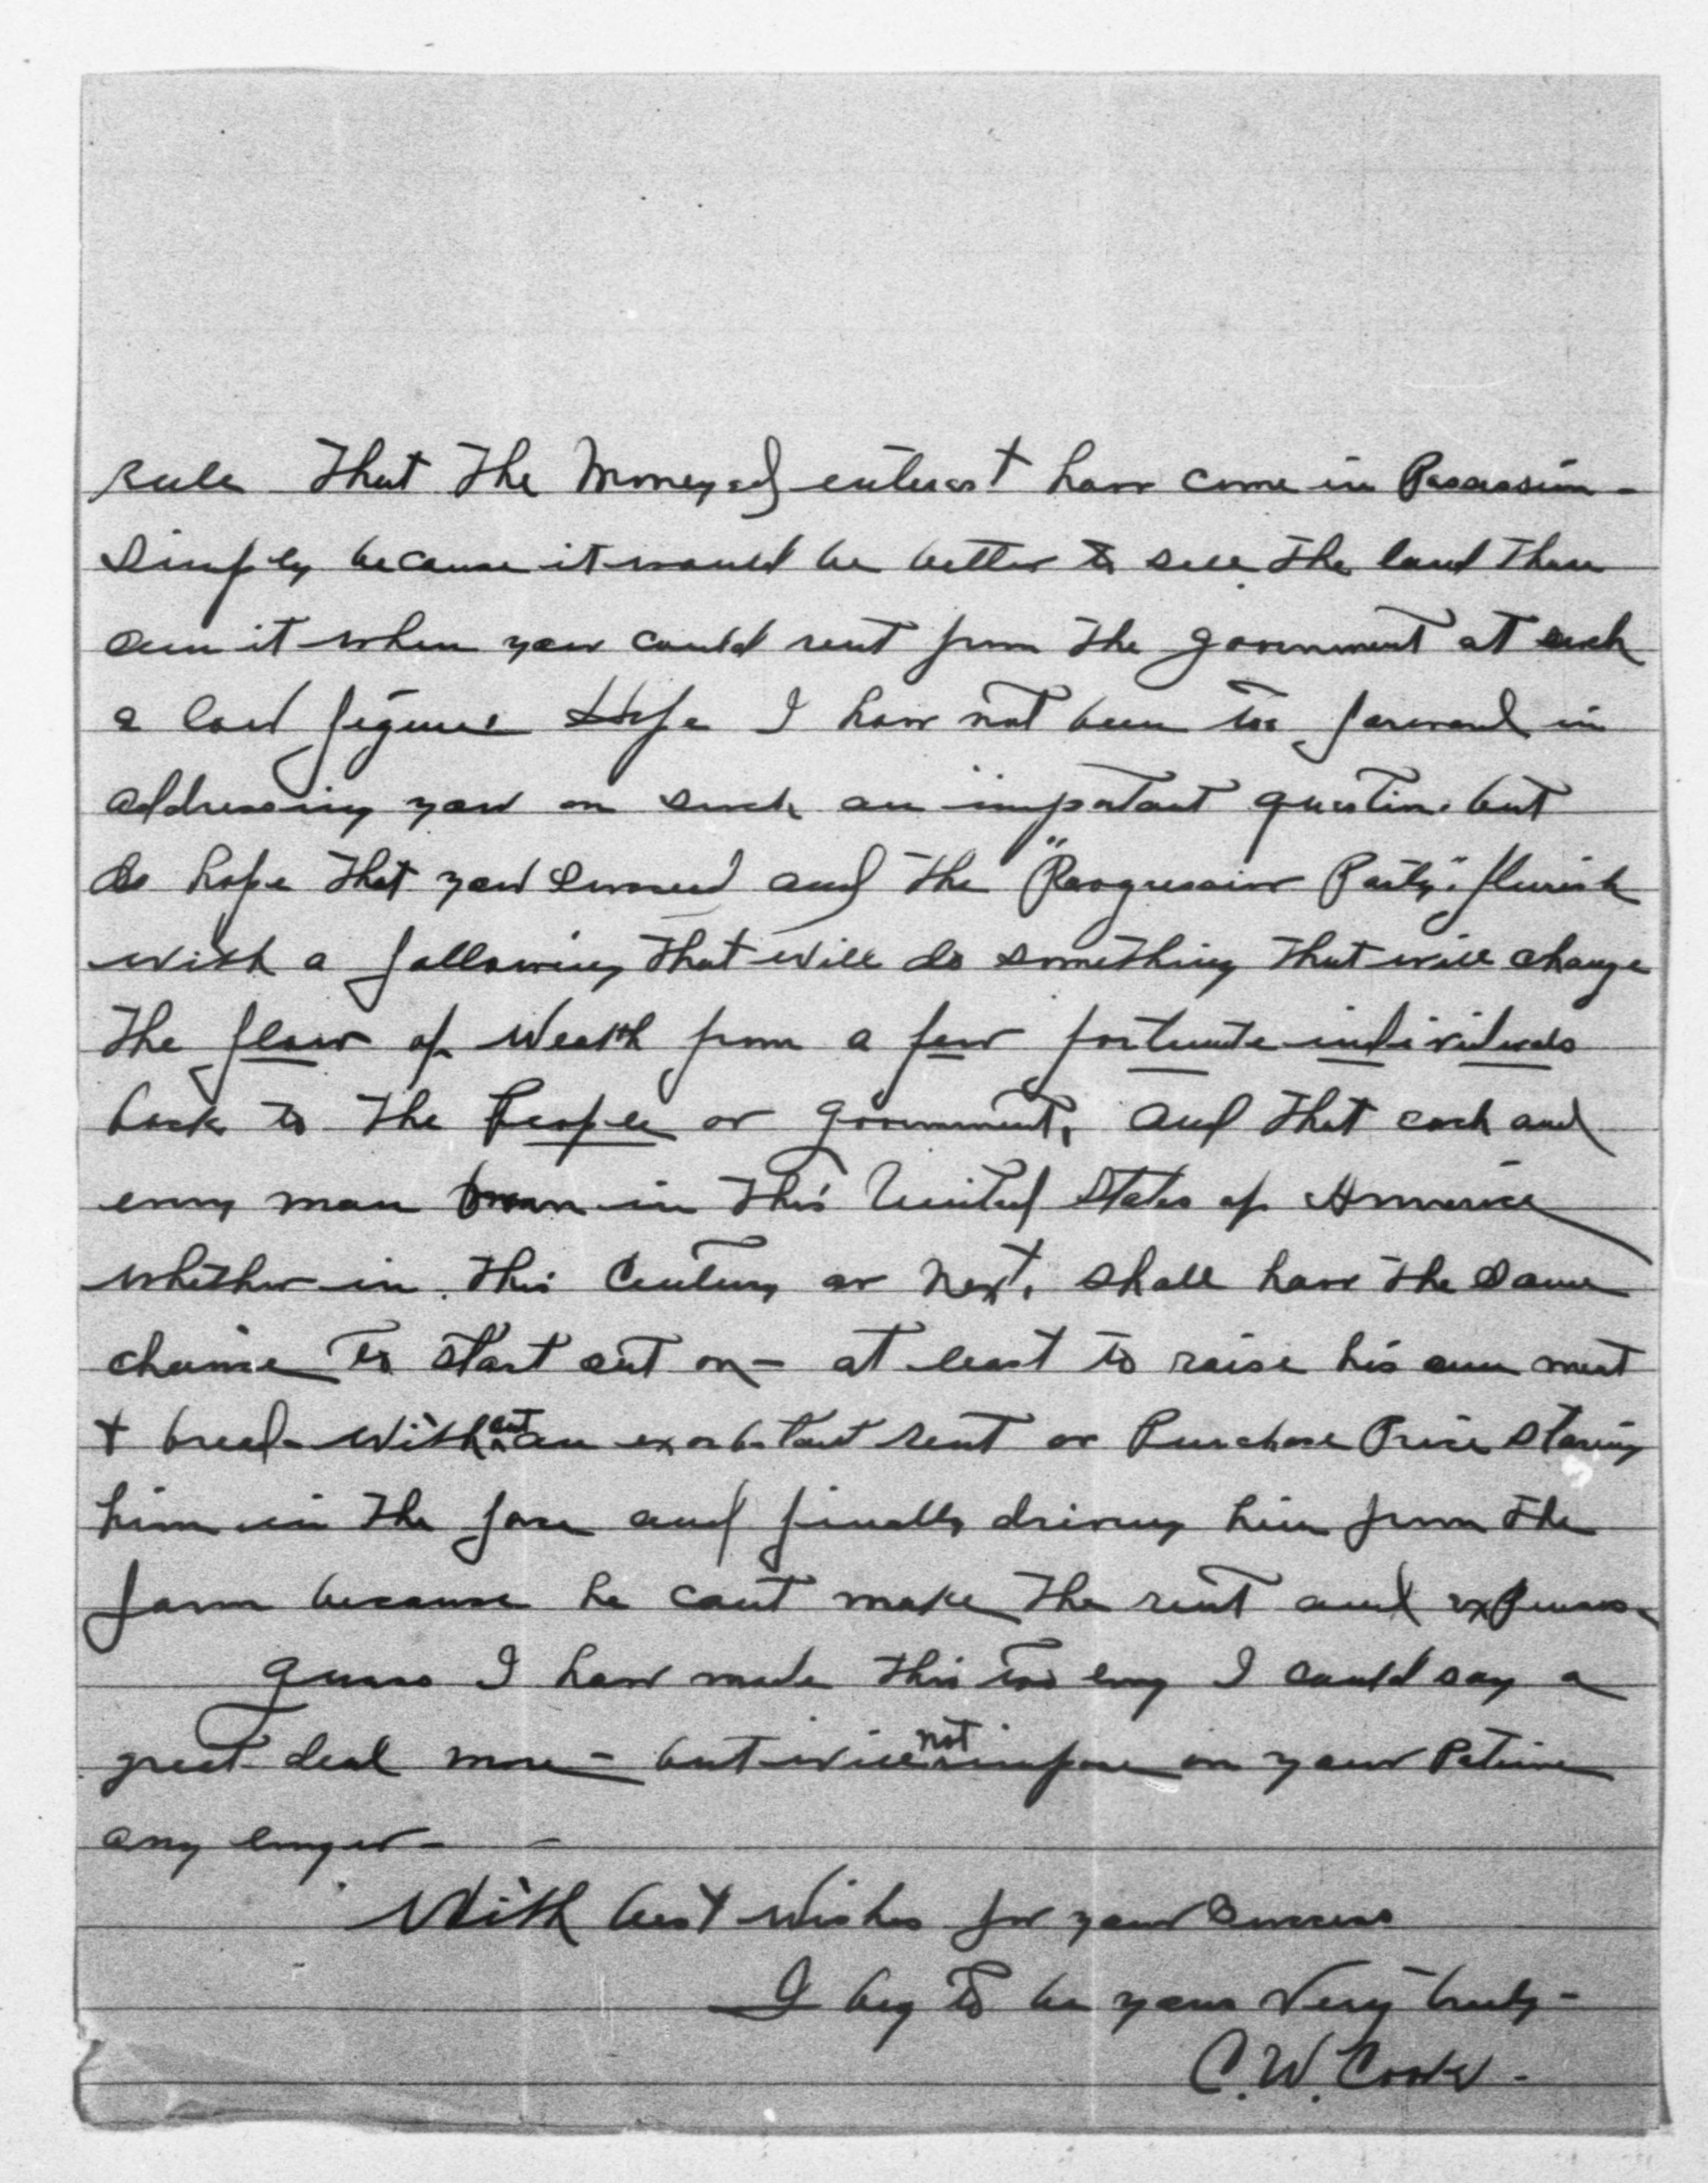 rule that the Moneyed interest have come in Possession -
Simply because it would be better to sell the land than
own it when you could rent from the government at such
a low figure. Hope I have not been too forward in
addressing you on such an important question. but
do hope that you succeed and the "Progressive Party". flurish
with a following that will do something that will change
the flow of Wealth from a few fortunate individuals
back to the People or government, and that each and
every man born in this United States of America
whether in this Century or next, shall have the same
chance to start out on - at least to raise his own meat
+ bread - without an exorbitant rent or Purchase Price staring
him in the face and finally driving him from the
farm because he cant make the rent and expenses
guess I have made this too long I could say a
great deal more - but will not impose on your Patience
any longer -
With best wishes for your success
I beg to be yours Very truly -
C. W. Cook -